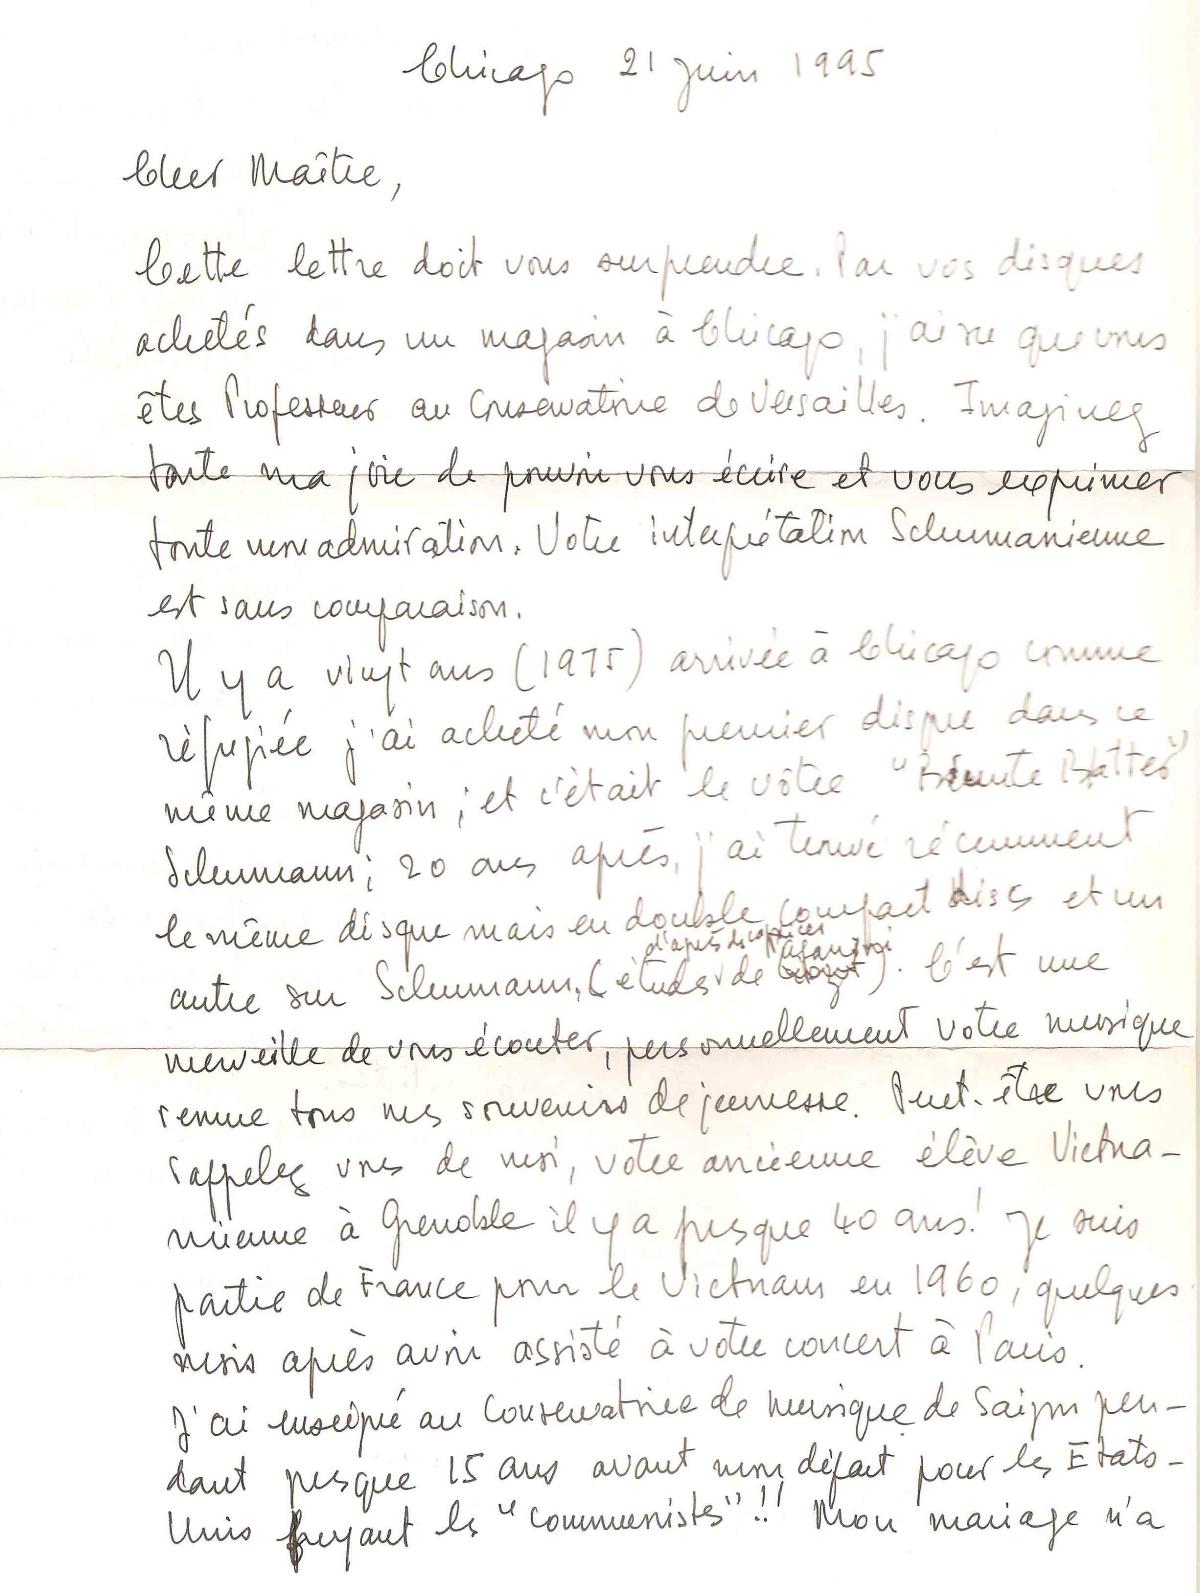 Chicago 21 juin 1995
Cher Maître,
Cette lettre doit vous surprendre. Par vos disques
achetés dans un magasin à Chicago, j'ai su que vous
êtes Professeur au Conservatoire de Versailles. Imaginez
toute ma joie de pouvoir vous écrire et vous exprimer
toute mon admiration. Votre interprétation Schumanienne
est sans comparaison.
Il y a vingt ans (1975) arrivée à Chicago comme
réfugiée j'ai acheté mon premier disque dans ce
même magasin ; et c'était le vôtre "Bunte Blätter"
Schumann ; 20 ans après, j'ai trouvé récemment
le même disque mais en double compact discs et un
d'après des caprices Paganini
autre sur Schumann, (études de ). C'est une
merveille de vous écouter, personnellement votre musique
remue tous mes souvenirs de jeunesse. Peut-être vous
rappelez vous de moi, votre ancienne élève Vietna-
mienne à Grenoble il y a presque 40 ans! Je suis
partie de France pour le Vietnam en 1960, quelques
mois après avoir assisté à votre concert à Paris.
J'ai enseigné au Conservatoire de musique de Saigon pen-
dant presque 15 ans avant mon départ pour les Etats-
Unis fuyant les "communistes"!! Mon mariage n'a